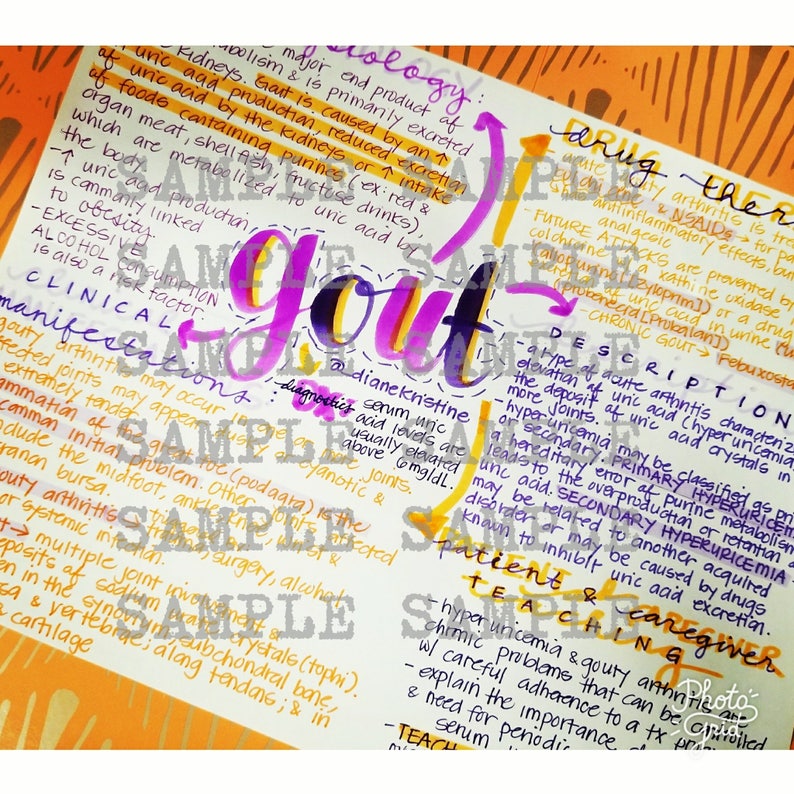 ology:
major end product of
metabolism & is primarily excreted
kidneys. Gout is caused by an ↑
of uric acid production, reduced excretion
of uric acid by the kidneys or ↑ intake
of foods containing purines (ex: red &
organ meat, shellfish, fructose drinks),
which are metabolized to uric acid by
the body.
-↑ uric acid production,
is commonly linked
to obesity.
- EXCESSIVE
ALCOHOL CONSUMPTION
is also a risk factor.
CLINICAL
manifestations:
gouty arthritis may occur in one or more joints.
affected joints may appear dusky or cyanotic &
extremely tender.
inflammation of the great toe (podagra) is the
common initial problem. Other joints affected
include the midfoot, ankle, knee, wrist &
olecranon bursa.
gouty arthritis → triggered by trauma, surgery, alcohol,
or systemic infection.
→ multiple joint involvement &
deposits of sodium urate crystals (tophi).
in the synovium, subchondral bone,
& vertebrae; along tendons; & in
& cartilage
gout
@dianekristine
diagnostics:
serum uric
acid levels are
usually elevated
above 6mg/dL.
drug ther
acute gouty arthritis is tre
colchicine & NSAIDs → for pa
antiinflammatory effects, but
analgesic
- FUTURE ATTACKS are prevented by
colchicine, a xathine oxidase
(allopurinol [zyloprim]) or a drug
excretion of uric acid in urine (u
(probenecid [Probalan])
- CHRONIC GOUT → Febuxosta
DESCRIPTION
- a type of acute arthritis characteriz
elevation of uric acid (hyperuricemia
the deposit of uric acid crystals in
more joints.
- hyperuricemia may be classified as pri
or secondary. PRIMARY HYPERURICEM
a hereditary error of purine metabolism
leads to the overproduction or retention o
uric acid. SECONDARY HYPERURICEMIA →
may be related to another acquired
disorder or may be caused by drugs
known to inhibit uric acid excretion.
patient & caregiver
TEACHING
- hyperuricemia & gouty arthritis are
chronic problems that can be controlled
w/ careful adherence to a tx program
- explain the importance of
& need for periodic
serum
- TEACH
SAMPLE SAMPLE
SAMPLE SAMPLE
SAMPLE SAMPLE
SAMPLE SAMPLE
SAMPLE SAMPLE
SAMPLE SAMPLE
SAMPLE SAMPLE
Photo
grid